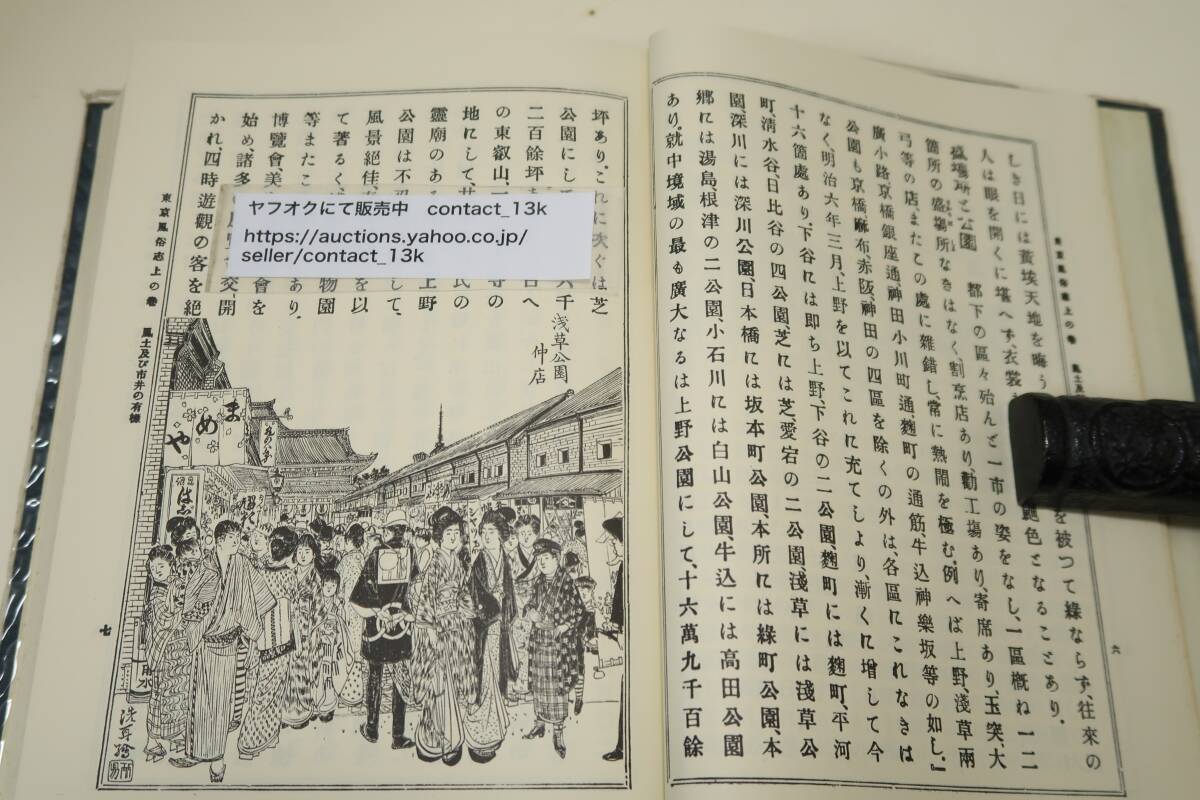 しき日には黃埃天地を晦う
を被つて綠ならず、往來の
人は眼を開くに堪へず、衣裳
艶色となることあり.
盛塲所と公園
都下の區々殆んど一市の姿をなし、一區槪ね一二
箇所の盛塲所なきはなく、割烹店あり、勸工塲あり、寄席あり、玉突、大
弓等の店、またこの處に雜錯し、常に熱閙を極む。例へば上野、淺草兩
廣小路京橋銀座通、神田小川町通、麴町の通筋、牛込神樂坂等の如し.』
公園も京橋麻布、赤阪、神田の四區を除くの外は、各區にこれなきは
なく、明治六年三月、上野を以てこれに充てしより漸くに增して今
十六箇處あり、下谷には卽ち上野、下谷の二公園麴町には麴町、平河
町、淸水谷、日比谷の四公園芝には芝、愛宕の二公園、淺草には淺草公
園、深川には深川公園、日本橋には坂本町公園、本所には綠町公園、本
鄕には湯島、根津の二公園、小石川には白山公園、牛込には高田公園
あり。就中境域の最も廣大なるは上野公園にして、十六萬九千百餘
東京風俗志上の卷
六
坪あり。これに次ぐは芝
公園にして
六千
二百餘坪
の東叡山、
地にして、
靈廟のある
上野
公園は不忍
して、
風景絕佳、
を以
て著るく、
物園
等またこ
あり.
博覽會、美
會を
始め、諸多
開
かれ、四時遊觀の客を絕
東京風俗志上の卷
風土及び市井の有樣
七
ヤフオクにて販売中 contact_13k
https://auctions.yahoo.co.jp/
seller/contact_13k
浅草公園
仲店
まめや
用水